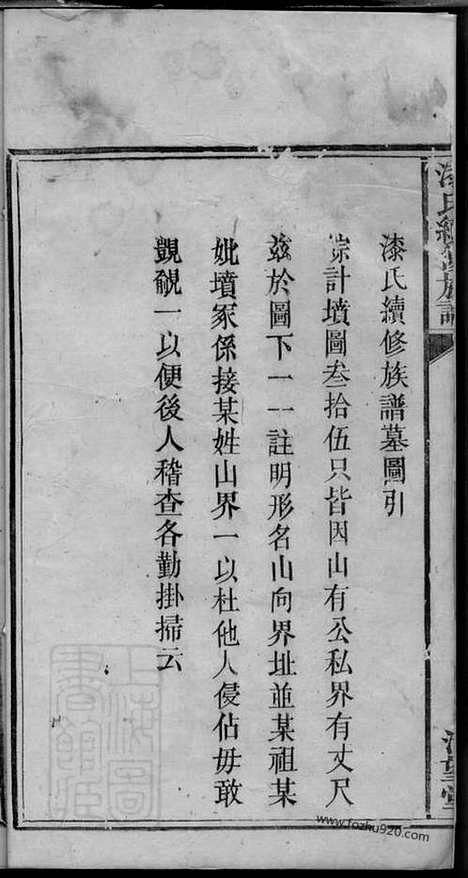 漆氏續修族譜墓圖引
綜計墳圖叁拾伍只皆因山有公私界有丈尺
茲於圖下一一註明形名山向界址並某祖某
妣墳冢係接某姓山界一以杜他人侵佔毋敢
覬覦一以便後人稽查各勤掛掃云
漆氏續修族譜
堂
上海圖書館藏
www.fozhu920.com